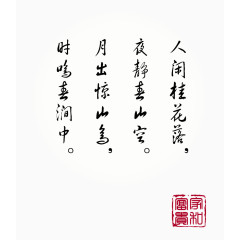 人闲桂花落，
夜静春山空。
月出惊山鸟，
时鸣春涧中。
家和
富贵